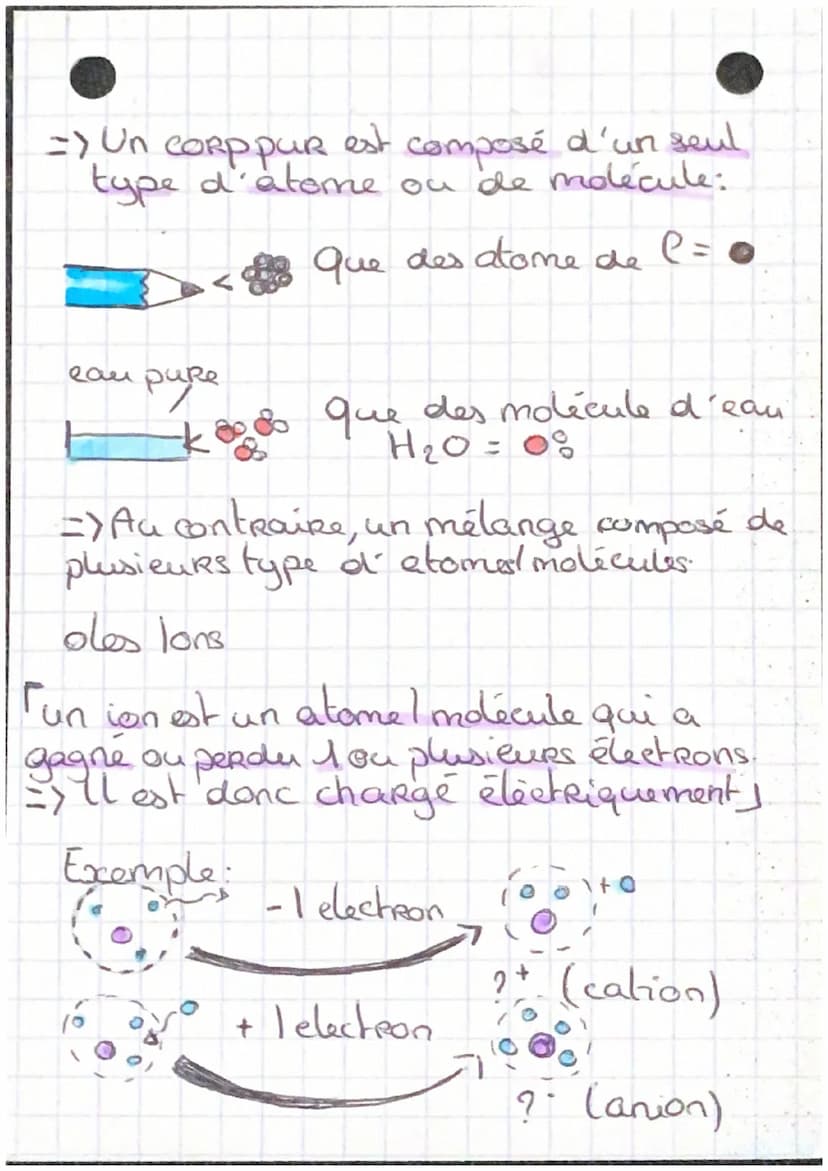 => Un corp pur est composé d'un seul
type d'atome ou de molécule:
Que des atome de C =
eau pure
que des molécule d'eau
H₂O =
=> Au contraire, un mélange composé de
plusieurs type d'atomes/molécules.
des Ions
「un ion est un atome/molécule qui a
gagné ou perdu 1 ou plusieurs électrons.
=> Il est donc chargé électriquement」
Exemple:
-1 electron
+
?⁺ (cation)
+ 1 electron
?⁻ (anion)